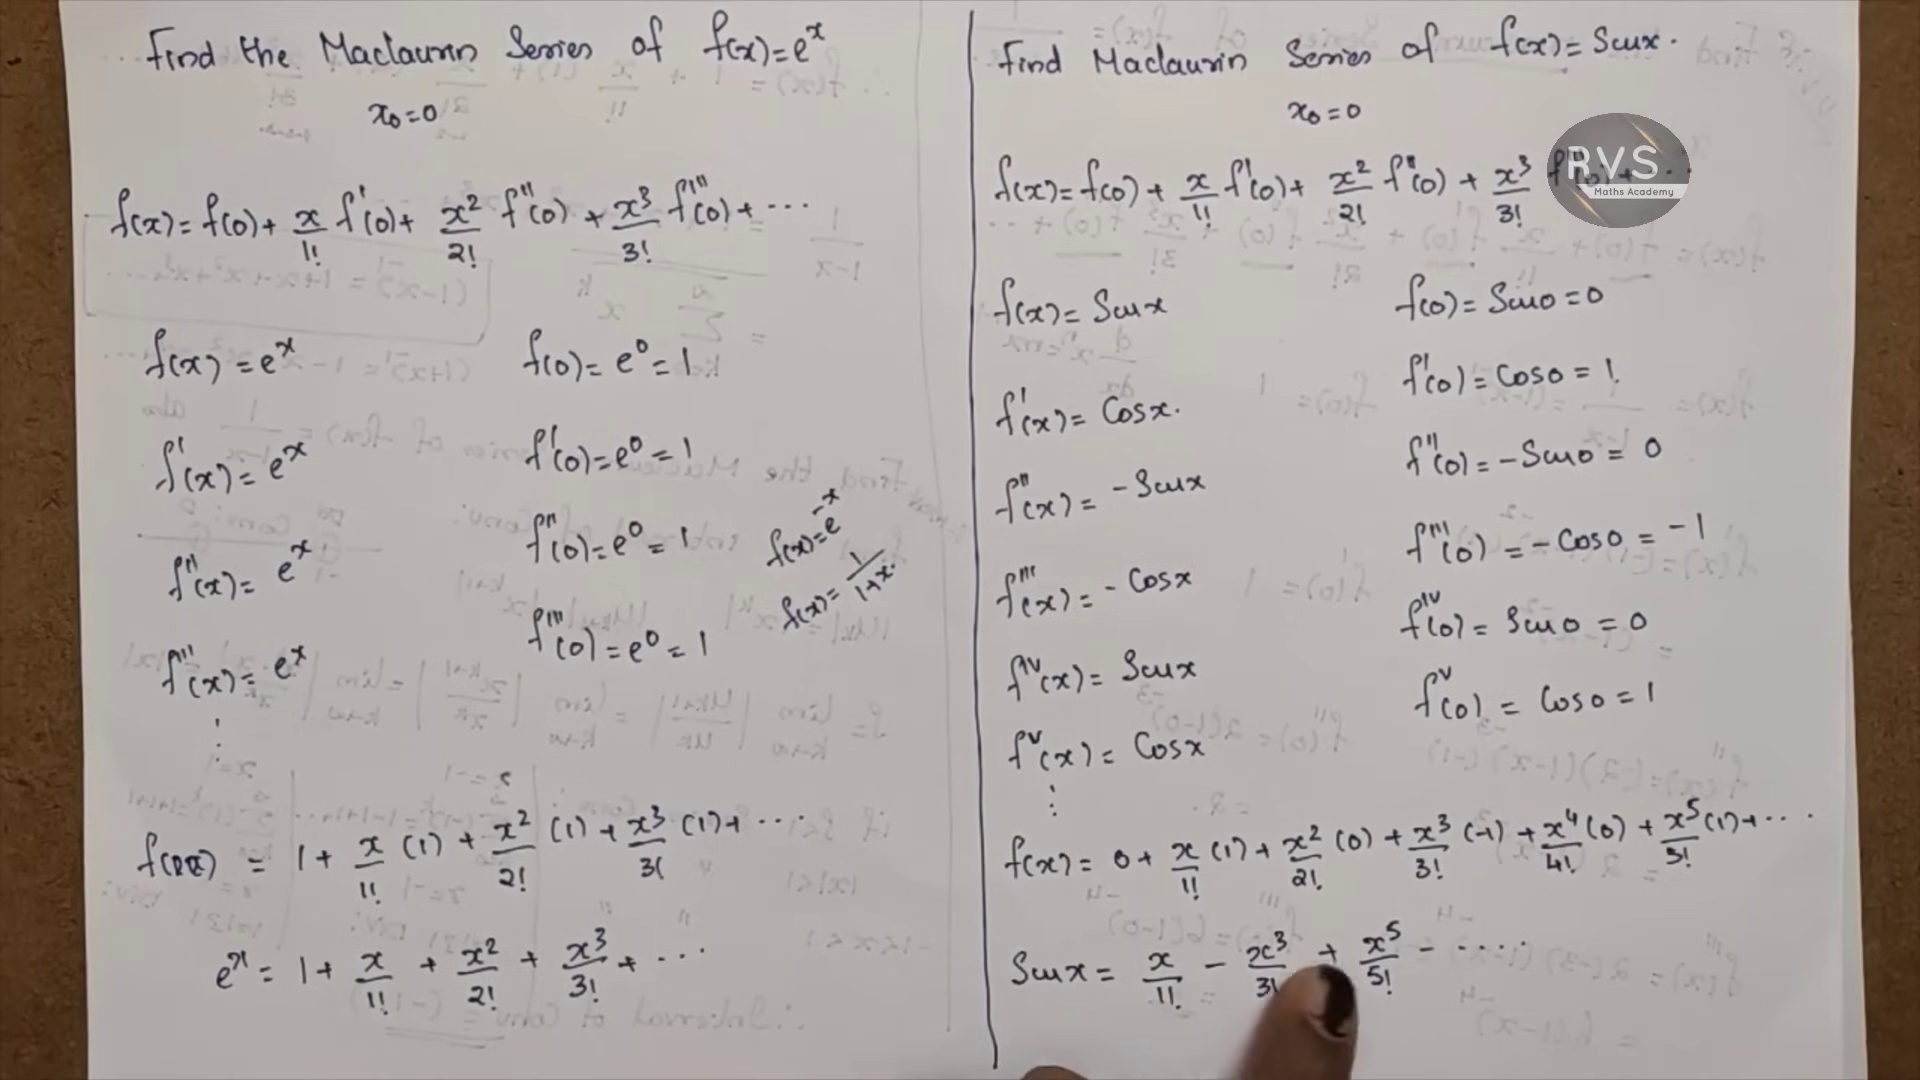 Find the Maclaurin Series of f(x)=e^x
x₀=0
f(x)=f(0)+ x/1! f'(0)+ x²/2! f''(0) + x³/3! f'''(0)+ ...
f(x)=e^x f(0)=e⁰=1
f'(x)=e^x f'(0)=e⁰=1
f''(x)=e^x f''(0)=e⁰=1
f'''(x)=e^x f'''(0)=e⁰=1
f(x)=e^-x
f(x)=1/1+x.
⋮
= 1+ x/1! (1) + x²/2! (1)+ x³/3! (1)+ ...
e^x = 1+ x/1! + x²/2! + x³/3! + ...
Find Maclaurin Series of f(x)=Sinx.
x₀=0
f(x)=f(0)+ x/1! f'(0)+ x²/2! f''(0) + x³/3!
RVS
Maths Academy
f(x)=Sinx f(0)=Sin0=0
f'(x)=Cosx. f'(0)=Cos0=1.
f''(x)=-Sinx f''(0)=-Sin0=0
f'''(x)=-Cosx f'''(0)=-Cos0=-1
f^iv(x)=Sinx f^iv(0)=Sin0=0
f^v(x)=Cosx f^v(0)=Cos0=1
⋮
f(x)= 0+ x/1! (1)+ x²/2! (0) + x³/3! (-1) + x⁴/4! (0) + x⁵/5! (1)+ ...
Sinx= x/1! - x³/3! + x⁵/5! - ....